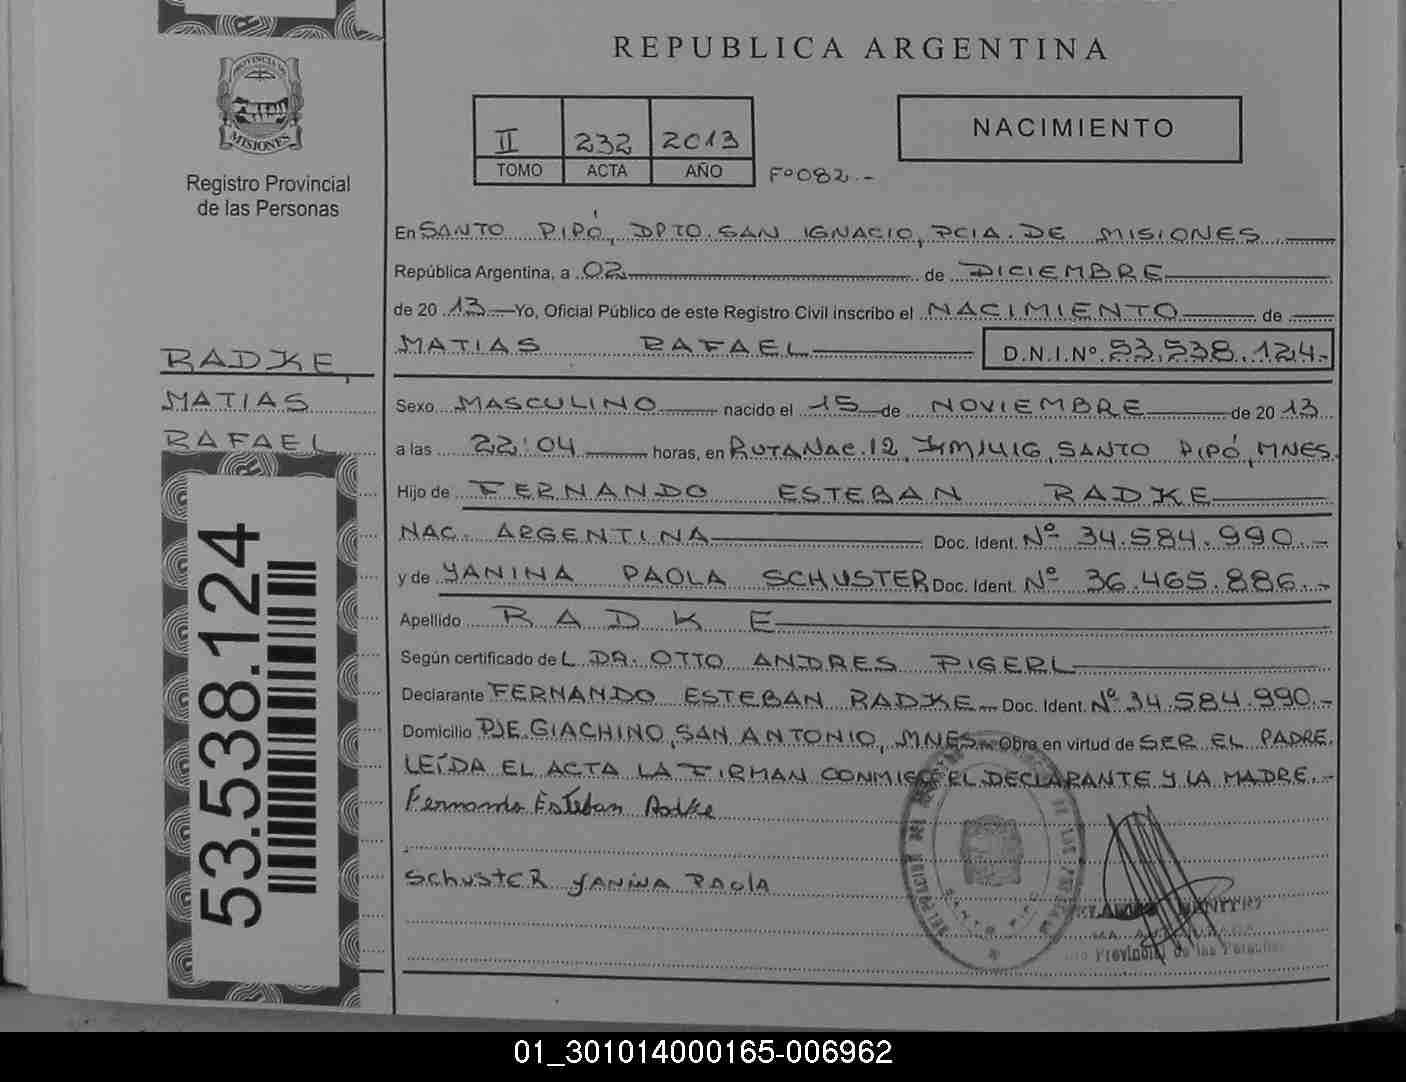 REPUBLICA ARGENTINA
PROVINCIA DE
MISIONES
Registro Provincial
de las Personas
II 232 2013
TOMO ACTA AÑO
Fº082.-
NACIMIENTO
En SANTO PIPÓ, DPTO. SAN IGNACIO, PCIA. DE MISIONES
República Argentina, a 02 de DICIEMBRE
de 2013 Yo, Oficial Público de este Registro Civil inscribo el NACIMIENTO de
MATIAS RAFAEL D.N.I.Nº 53.538.124.-
RADKE,
MATIAS
RAFAEL
Sexo MASCULINO nacido el 15 de NOVIEMBRE de 2013
a las 22:04 horas, en RUTA NAC. 12, KM 1416, SANTO PIPÓ, MNES.
Hijo de FERNANDO ESTEBAN RADKE
NAC. ARGENTINA Doc. Ident. Nº 34.584.990.-
y de YANINA PAOLA SCHUSTER Doc. Ident. Nº 36.465.886.-
Apellido RADKE
Según certificado de L DR. OTTO ANDRES PIGERL
Declarante FERNANDO ESTEBAN RADKE Doc. Ident. Nº 34.584.990.-
Domicilio PJE. GIACHINO, SAN ANTONIO, MNES Obra en virtud de SER EL PADRE.
LEÍDA EL ACTA LA FIRMAN CONMIGO EL DECLARANTE Y LA MADRE.-
Fernando Esteban Radke
SCHUSTER YANINA PAOLA
SANTO PIPO
Provincial de las Personas
53.538.124
01_301014000165-006962